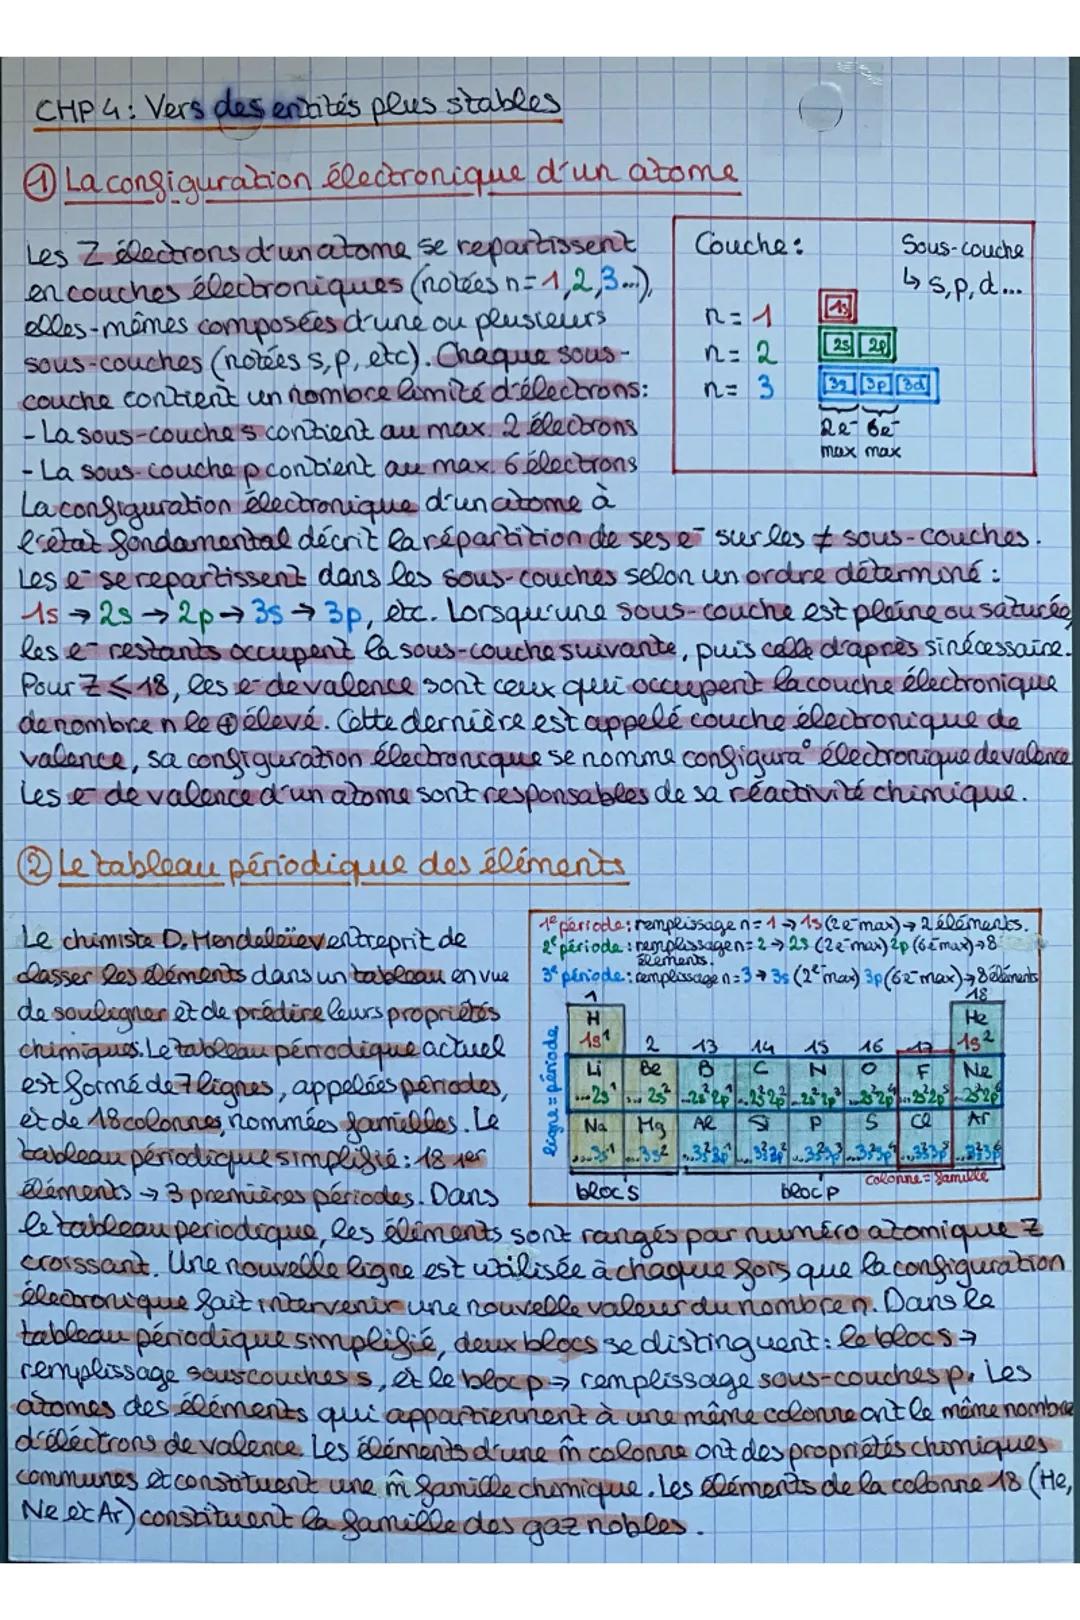 CHP 4 : Vers des entités plus stables
① La configuration électronique d'un atome
Les Z électrons d'un atome se repartissent
en couches électroniques (notées n = 1, 2, 3...),
elles-mêmes composées d'une ou plusieurs
sous-couches (notées s, p, etc). Chaque sous-
couche contient un nombre limité d'électrons :
- La sous-couche s contient au max. 2 électrons
- La sous-couche p contient au max. 6 électrons
La configuration électronique d'un atome à
l'état fondamental décrit la répartition de ses e⁻ sur les ≠ sous-couches.
Les e⁻ se repartissent dans les sous-couches selon un ordre déterminé :
1s → 2s → 2p → 3s → 3p, etc. Lorsqu'une sous-couche est pleine ou saturée,
les e⁻ restants occupent la sous-couche suivante, puis celle d'après si nécessaire.
Pour Z ≤ 18, les e⁻ de valence sont ceux qui occupent la couche électronique
de nombre n le ⊕ élevé. Cette dernière est appelé couche électronique de
valence, sa configuration électronique se nomme configura° électronique de valence
Les e⁻ de valence d'un atome sont responsables de sa réactivité chimique.
Couche :
Sous-couche
↳ s, p, d...
n = 1 1s
n = 2 2s 2p
n = 3 3s 3p 3d
2e⁻ 6e⁻
max max
② Le tableau périodique des éléments
Le chimiste D. Mendeleïev entreprit de
classer les éléments dans un tableau en vue
de souligner et de prédire leurs propriétés
chimiques. Le tableau périodique actuel
est formé de 7 lignes, appelées périodes,
et de 18 colonnes, nommées familles. Le
tableau périodique simplifié : 18 1ers
éléments → 3 premières périodes. Dans
le tableau periodique, les éléments sont rangés par numéro atomique Z
croissant. Une nouvelle ligne est utilisée à chaque fois que la configuration
électronique fait intervenir une nouvelle valeur du nombre n. Dans le
tableau périodique simplifié, deux blocs se distinguent : le bloc s →
remplissage sous couches s, et le bloc p → remplissage sous-couches p. Les
atomes des éléments qui appartiennent à une même colonne ont le même nombre
d'éléctrons de valence. Les éléments d'une m̂ colonne ont des propriétés chimiques
communes et constituent une m̂ famille chimique. Les éléments de la colonne 18 (He,
Ne et Ar) constituent la famille des gaz nobles.
1e période : remplissage n = 1 → 1s (2e⁻ max) → 2 éléments.
2e période : remplissage n = 2 → 2s (2e⁻ max) 2p (6e⁻ max) → 8
éléments.
3e période : remplissage n = 3 → 3s (2e⁻ max) 3p (6e⁻ max) → 8 éléments
1 18
H He
1s¹ 2 13 14 15 16 17 1s²
Li Be B C N O F Ne
...2s¹ ...2s² ...2s²2p¹ ...2s²2p² ...2s²2p³ ...2s²2p⁴ ...2s²2p⁵ ...2s²2p⁶
Na Mg Al Si P S Cl Ar
...3s¹ ...3s² ...3s²3p¹ ...3s²3p² ...3s²3p³ ...3s²3p⁴ ...3s²3p⁵ ...3s²3p⁶
ligne = période
bloc s bloc p colonne = famille